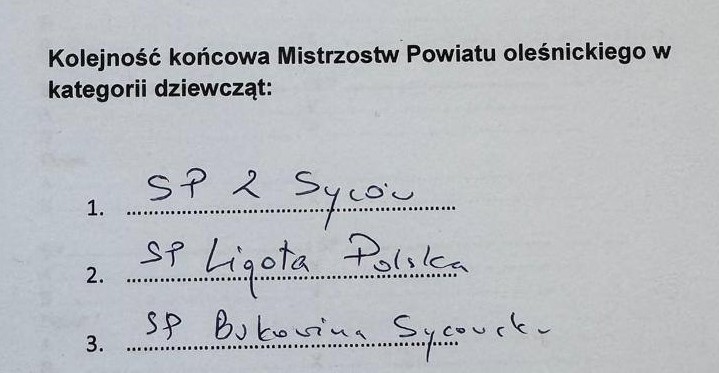 Kolejność końcowa Mistrzostw Powiatu oleśnickiego w
kategorii dziewcząt:
1. SP 2 Syców
2. SP Ligota Polska
3. SP Bukowina Sycowska